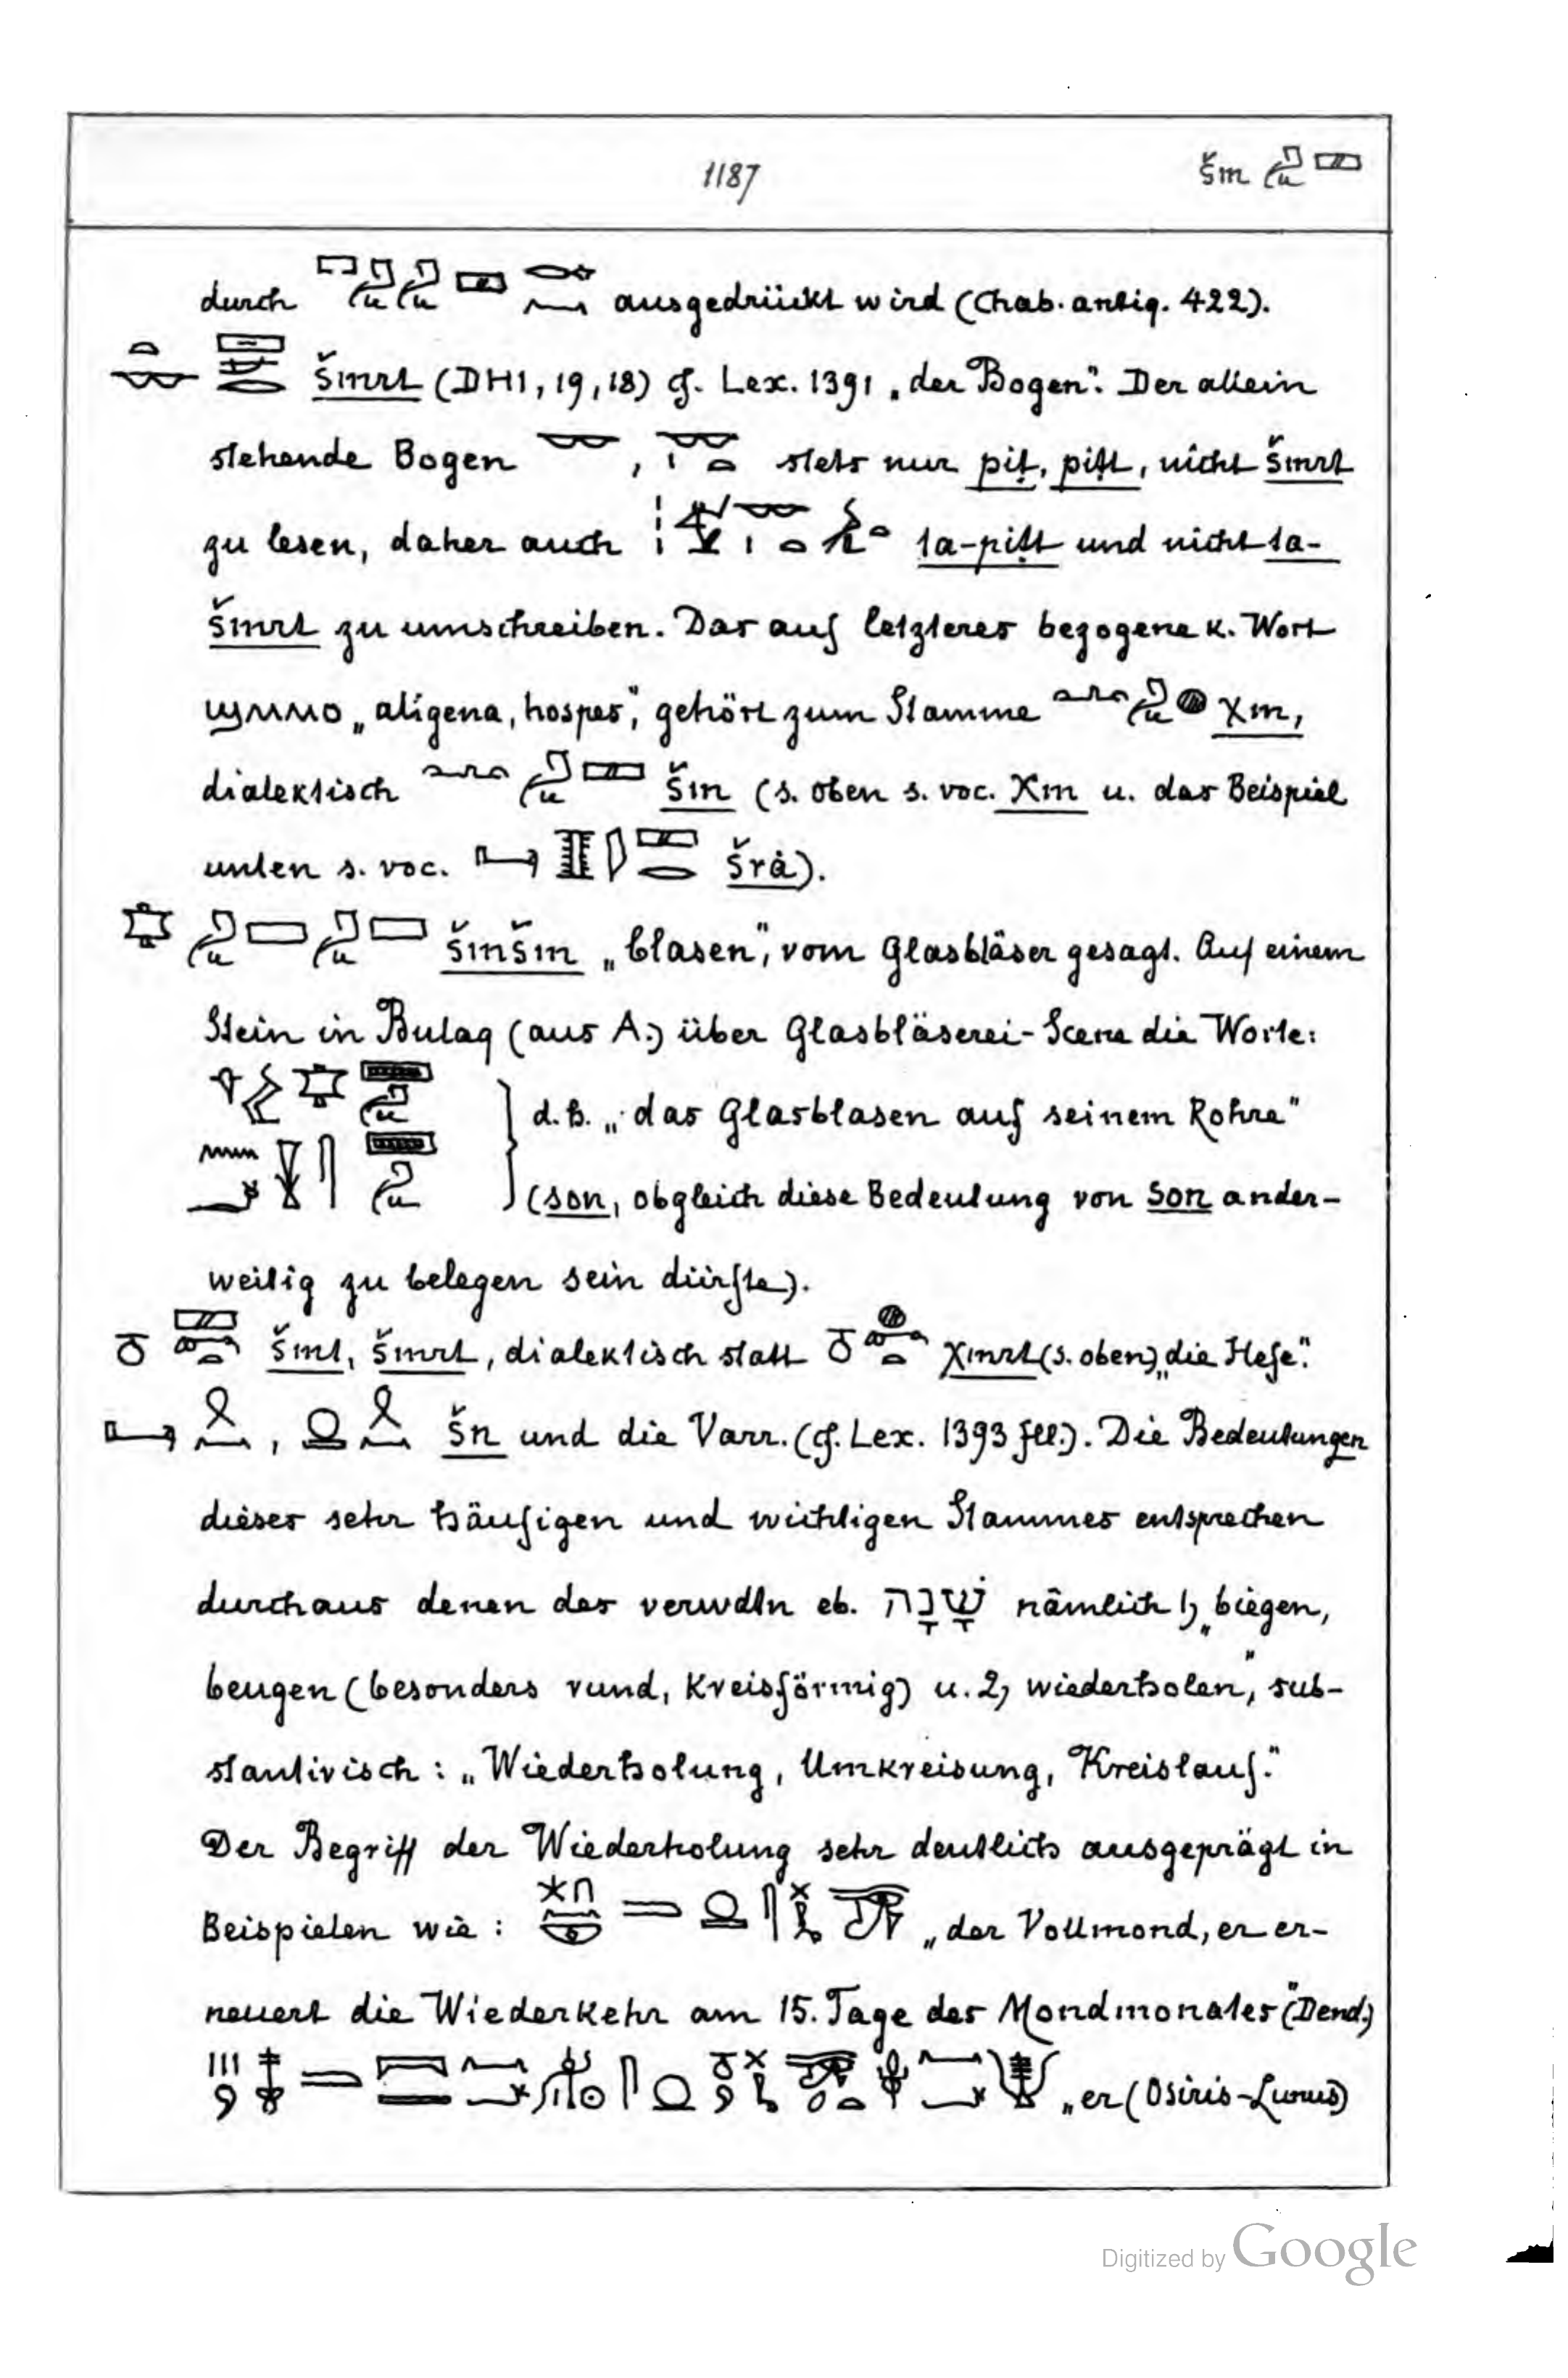 1187
šm
durch ausgedrückt wird (Chab. antiq. 422).
šmrt (DHI, 19, 18) cf. Lex. 1391 „der Bogen". Der allein
stehende Bogen , stets nur pit, pitt, nicht šmrt
zu lesen, daher auch ta-pitt und nicht ta-
šmrt zu umschreiben. Das auf letzteres bezogene k. Wort
ϣⲙⲙⲟ „aligena, hospes", gehört zum Stamme χm,
dialektisch šm (s. oben s. voc. χm u. das Beispiel
unten s. voc. šrȧ).
šmšm „blasen", vom Glasbläser gesagt. Auf einem
Stein in Bulaq (aus A.) über Glasbläserei-Scene die Worte:
d.h. „das Glasblasen auf seinem Rohre"
(son, obgleich diese Bedeutung von son ander-
weitig zu belegen sein dürfte).
šmt, šmrt, dialektisch statt χmrt (s. oben) „die Hefe".
, šn und die Varr. (cf. Lex. 1393 fll.). Die Bedeutungen
dieses sehr häufigen und wichtigen Stammes entsprechen
durchaus denen des verwdtn eb. שָׁנָה nämlich 1) „biegen,
beugen (besonders rund, kreisförmig) u. 2) wiederholen", sub-
stantivisch: „Wiederholung, Umkreisung, Kreislauf."
Der Begriff der Wiederholung sehr deutlich ausgeprägt in
Beispielen wie: „der Vollmond, er er-
neuert die Wiederkehr am 15. Tage des Mondmonates" (Dend.)
„er (Osiris-Lunus)
Digitized by Google